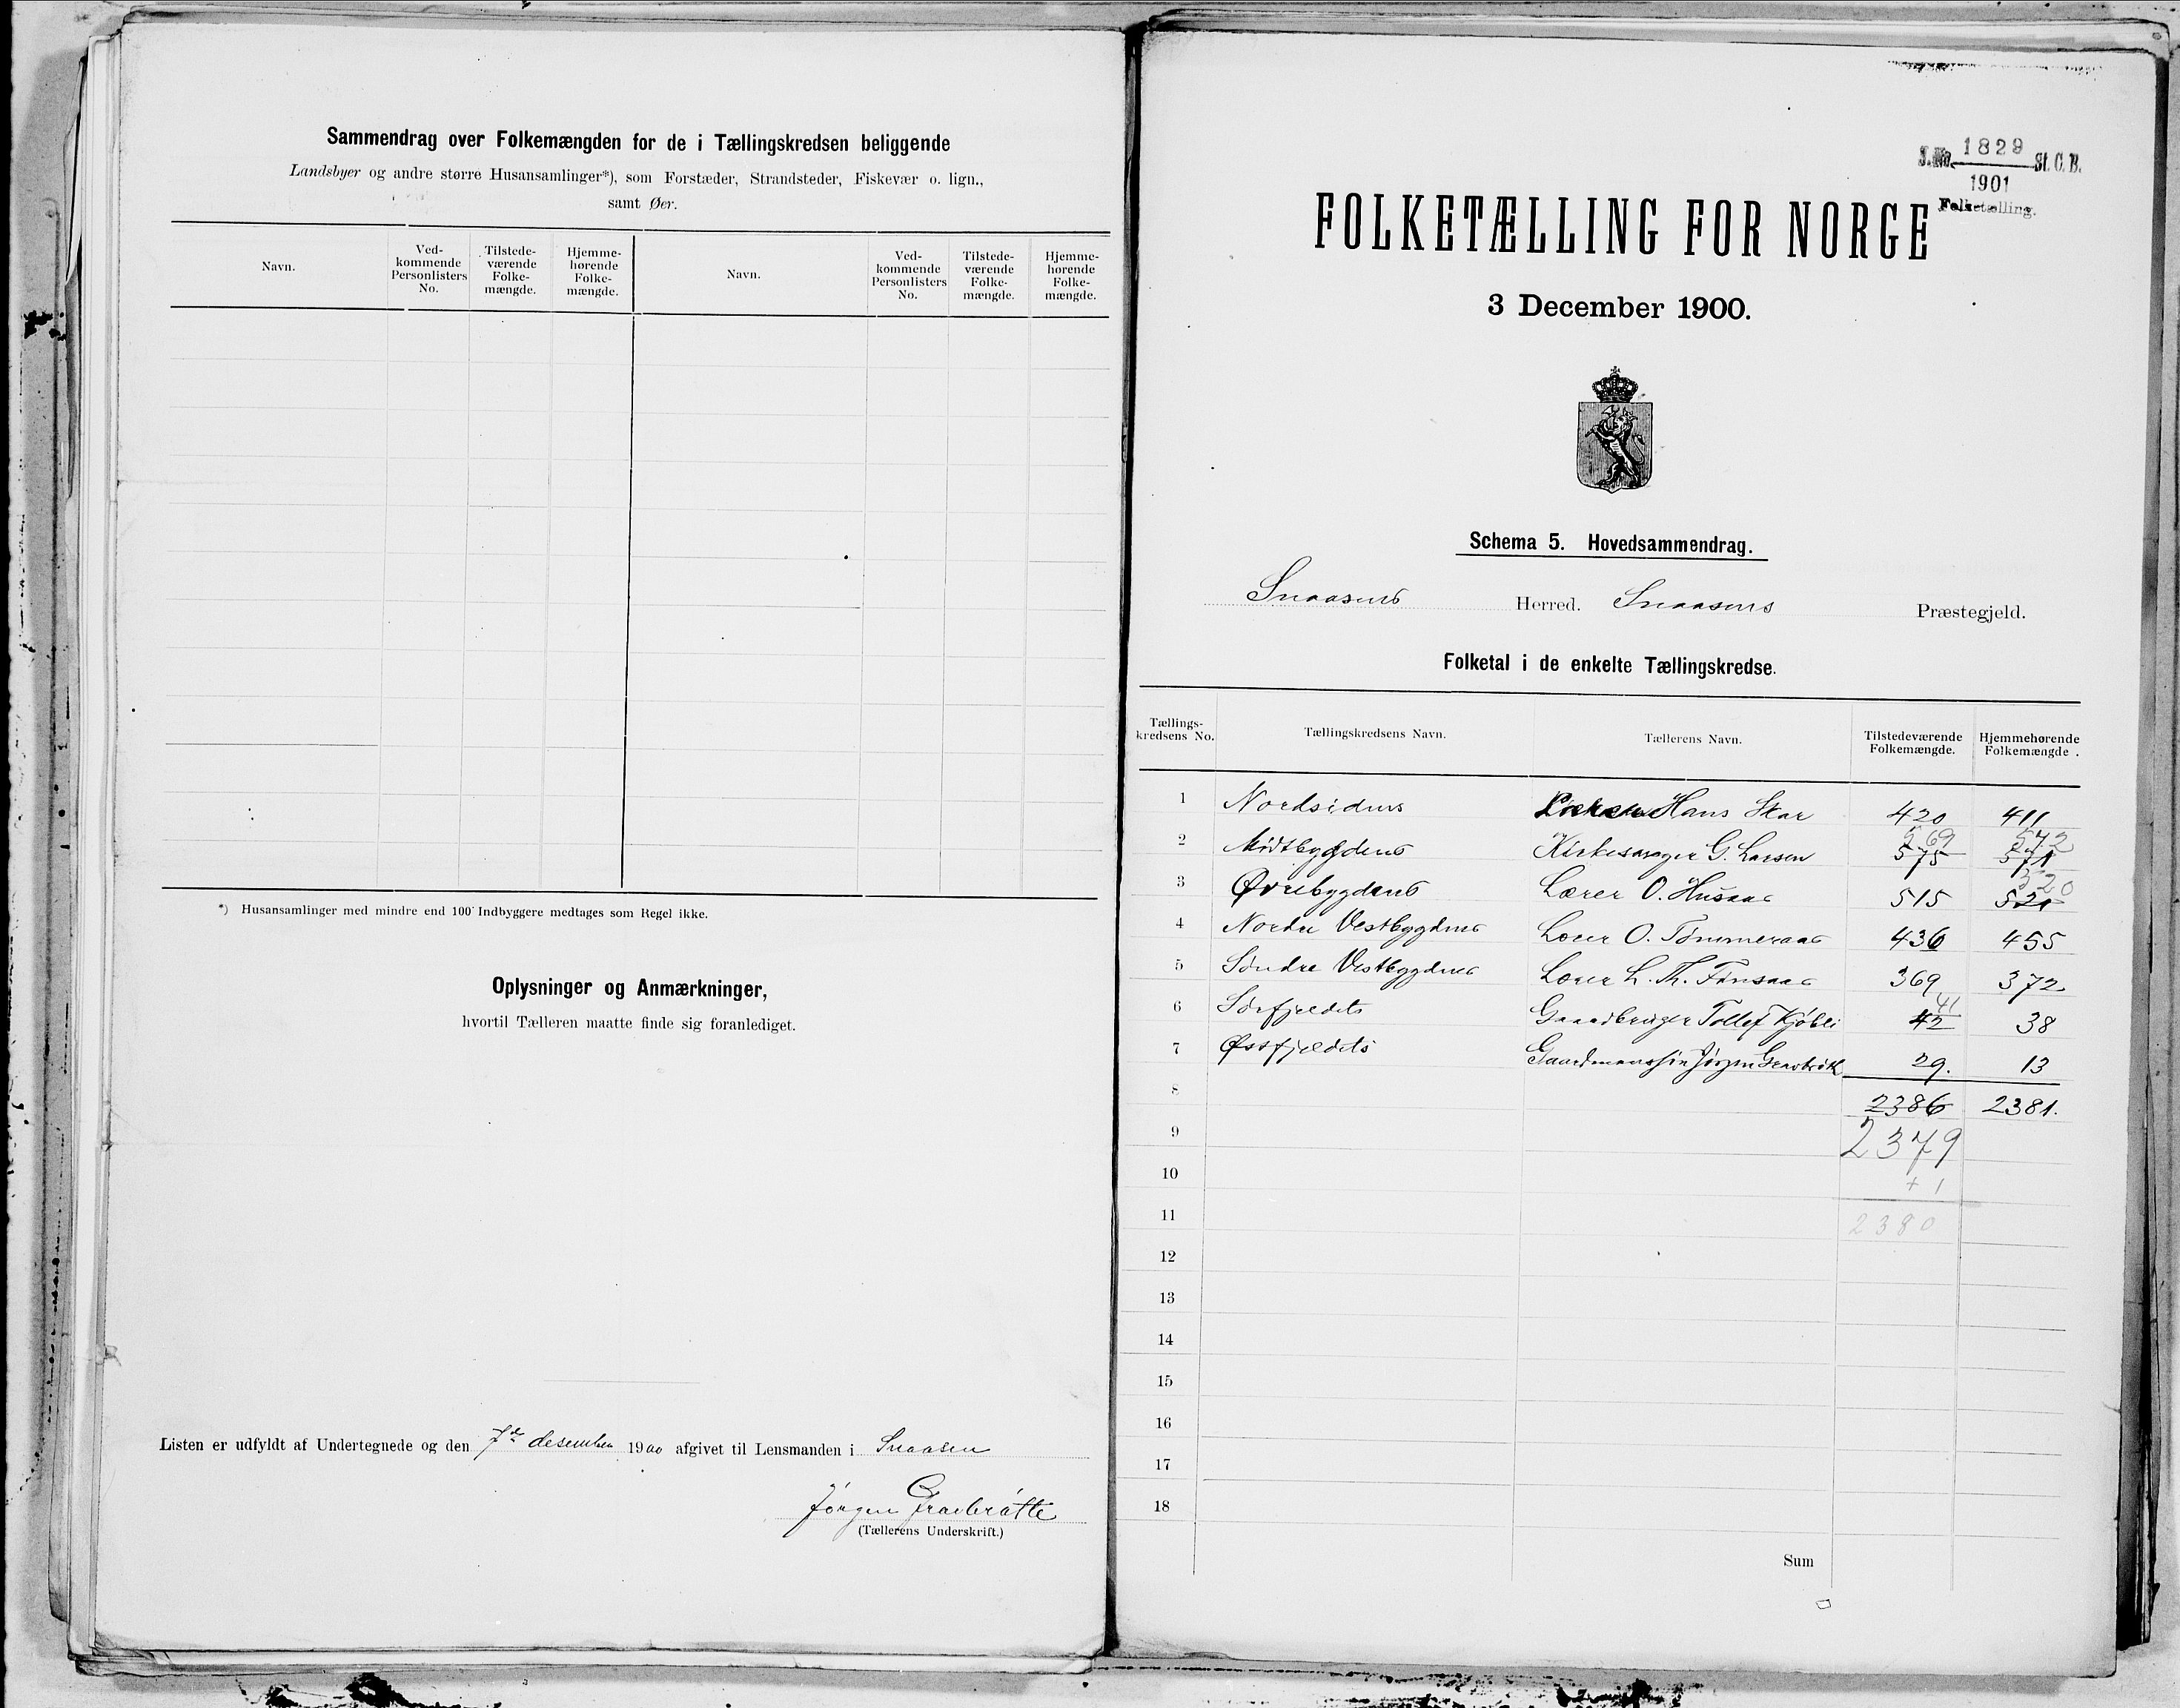 Sammendrag over Folkemængden for de i Tællingskredsen beliggende
Landsbyer og andre større Husansamlinger*), som Forstæder, Strandsteder, Fiskevær o. lign.,
samt Øer.
Navn. Ved-kommende Personlisters No. Tilstede-værende Folke-mængde. Hjemme-hørende Folke-mængde. Navn. Ved-kommende Personlisters No. Tilstede-værende Folke-mængde. Hjemme-hørende Folke-mængde.
*) Husansamlinger med mindre end 100 Indbyggere medtages som Regel ikke.
Oplysninger og Anmærkninger,
hvortil Tælleren maatte finde sig foranlediget.
Listen er udfyldt af Undertegnede og den 7de desember 1900 afgivet til Lensmanden i Snaasen
Jørgen Gravbråtte
(Tællerens Underskrift.)
J. No. 1829 St. C. B.
1901
Folketælling.
FOLKETÆLLING FOR NORGE
3 December 1900.
Schema 5. Hovedsammendrag.
Snaasens Herred. Snaasens Præstegjeld.
Folketal i de enkelte Tællingskredse.
Tællings-kredsens No. Tællingskredsens Navn. Tællerens Navn. Tilstedeværende Folkemængde. Hjemmehørende Folkemængde.
1 Nordsidens Hans Skar 420 411
569 572
2 Midtbygdens Kirkesanger G. Larsen 575 571
520
3 Øvrebygdens Lærer O. Husaas 515 521
4 Nordre Vestbygdens Lærer O. Tømmeraas 436 455
5 Søndre Vestbygdens Lærer L. Th. Finsaas 369 372
41
6 Sørfjeldets Gaardbruger Tollef Kjøbli 42 38
7 Østfjeldets Gaardmandssøn Jørgen Gravbrått 29. 13
8 2386 2381.
9 2379
10 + 1
11 2380
12
13
14
15
16
17
18
Sum